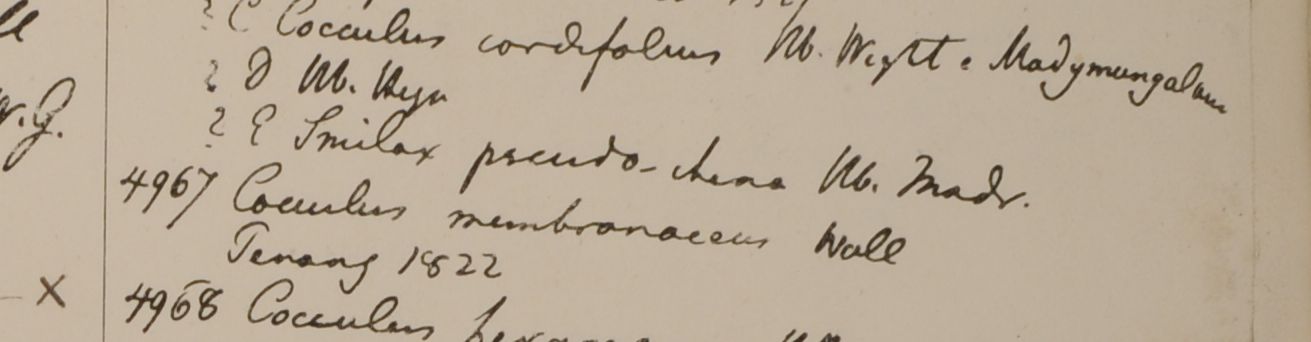 ? C Cocculus cordifolius Hb. Wight e Madymungalam
? D Hb. Heyn
W.G.
? E Smilax pseudo-china Hb. Madr.
4967 Cocculus membranaceus Wall
Penang 1822
X 4968 Cocculus